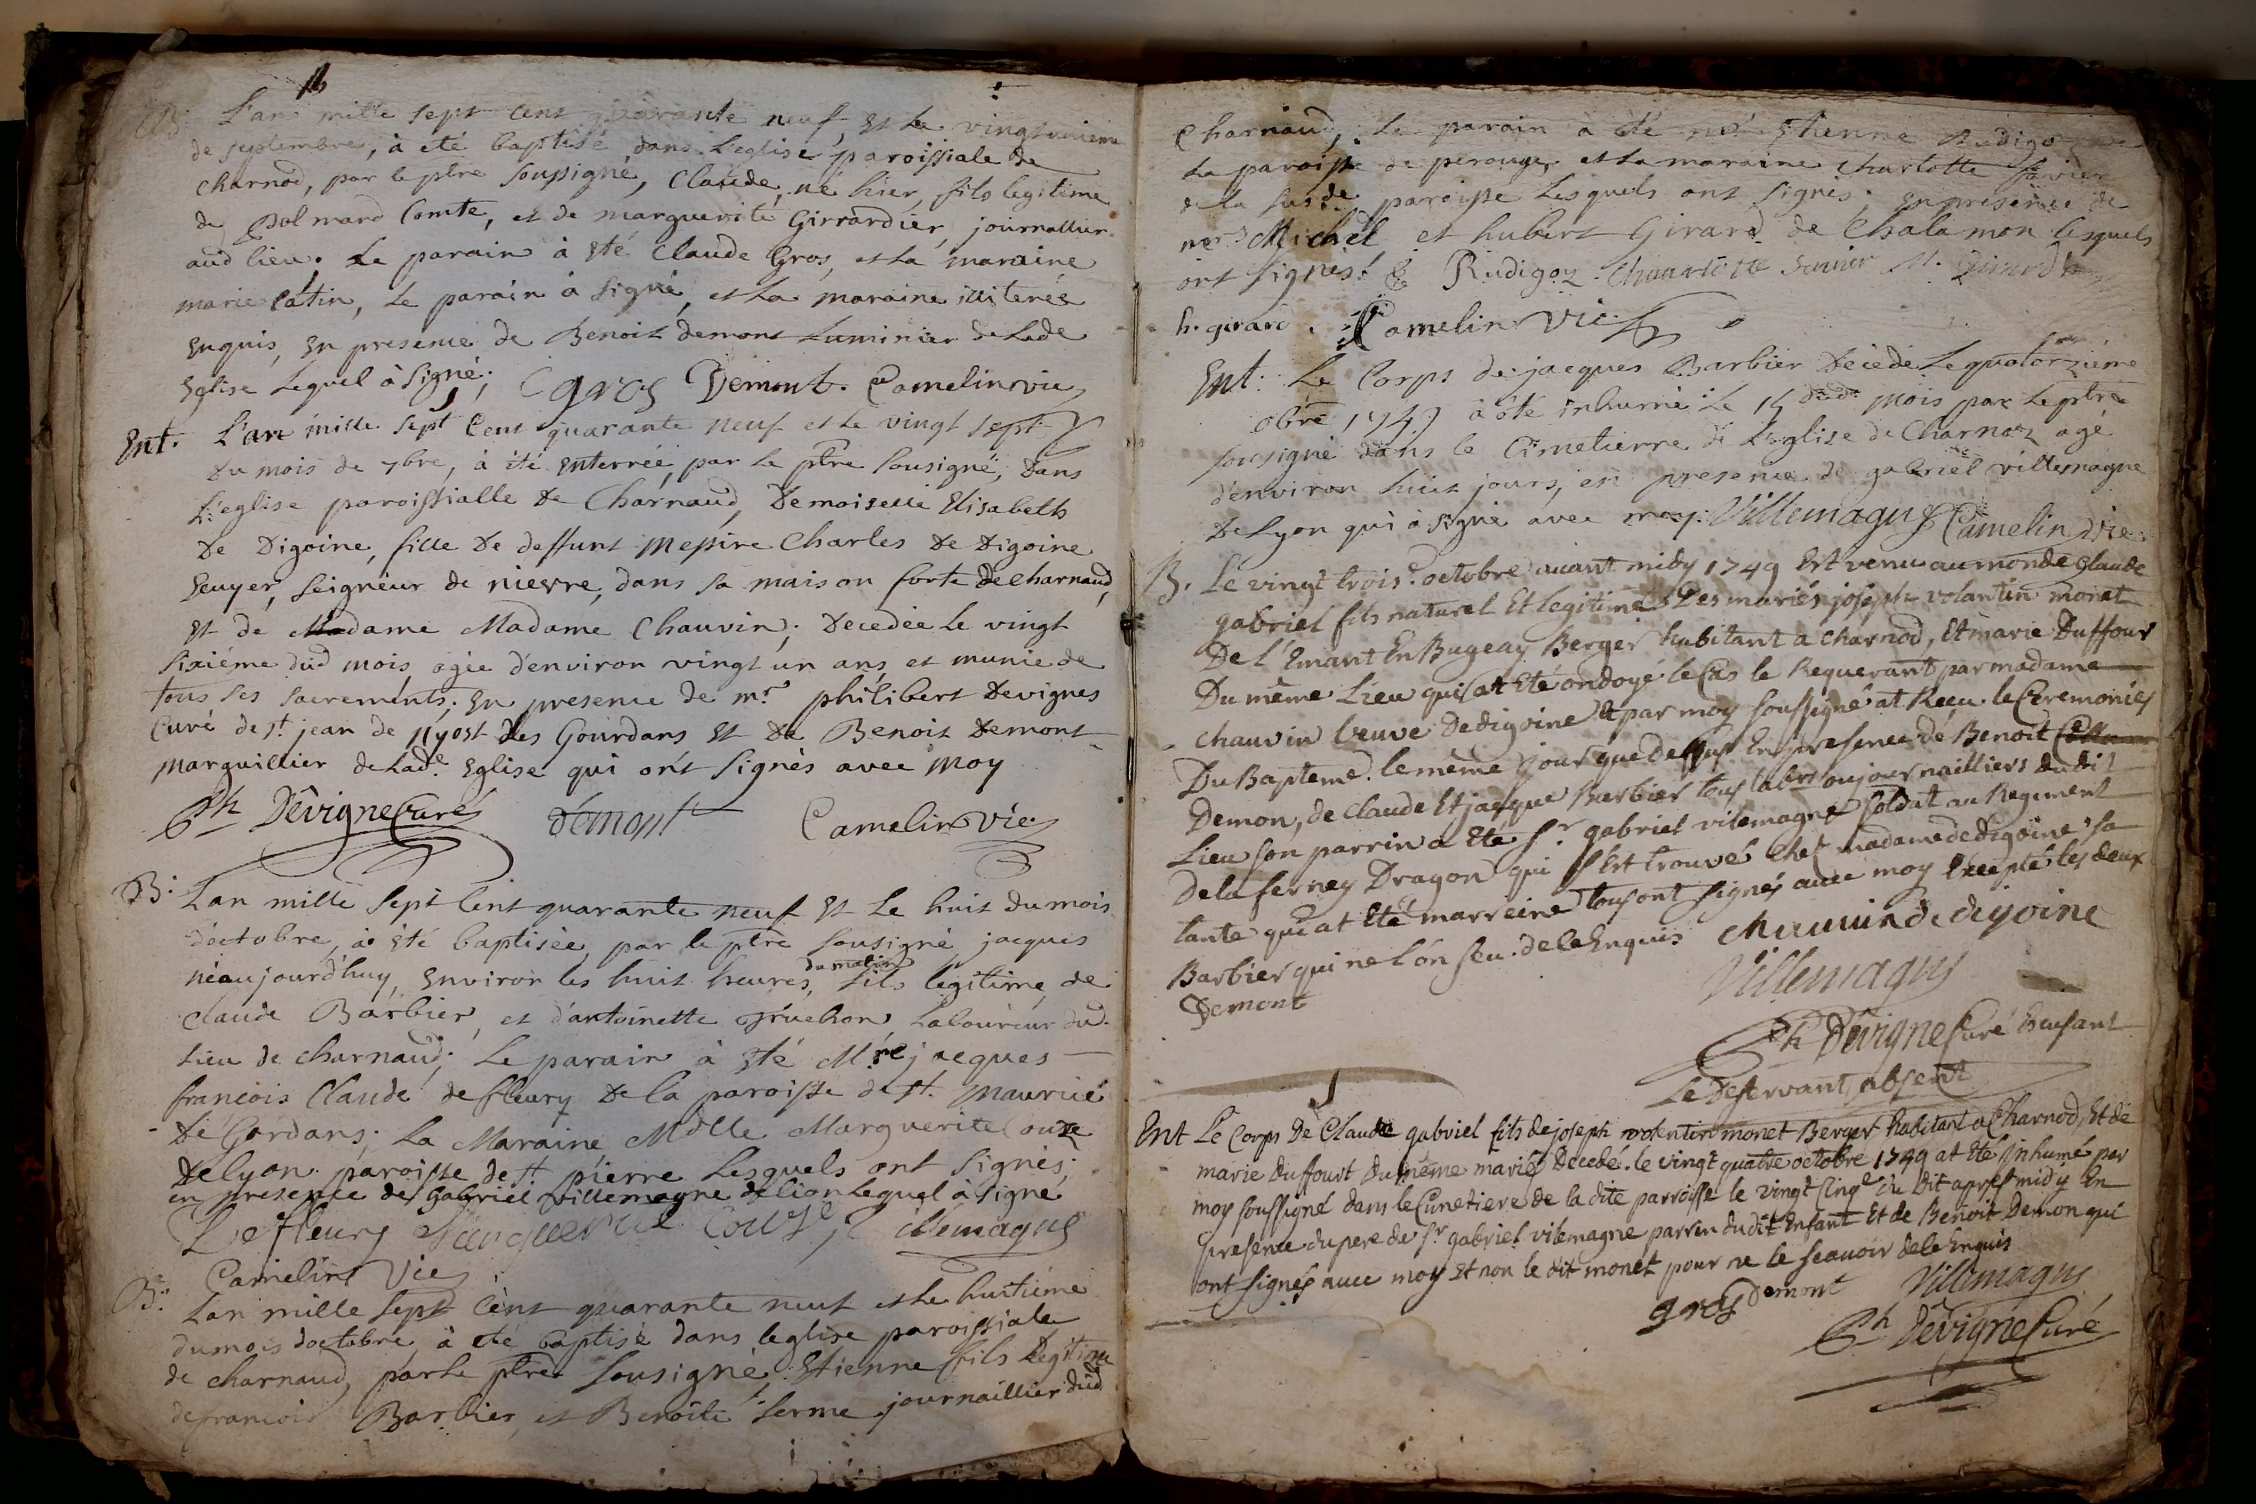 B. L'an mille sept cent quarante neuf, et le vingt unieme
de septembre, à eté baptisé dans L'eglise paroissiale de
charnod, par le ptre sousigné, Claude, né hier, fils legitime
de Comte, et de marguerite Girrardier, journallier
aud lieu. Le parain à eté Claude Gros, et la maraine
marie Catin, Le parain à signé, et la maraine illiterée
enquis, en presence de Benoit demont Luminier de Lade
Eglise Lequel à signé; C gros Demont. Camelin vic
Ent. L'an mille sept Cent quarante neuf et le vingt sept
Du mois de 7bre, à été enterrée, par le ptre sousigné, Dans
L'eglise paroissialle De Charnaud, Demoiselle Elisabeth
De Digoine, fille De deffunt Messire Charles De Digoine
Ecuyer, Seigneur de nievre, dans sa maison forte de Charnaud,
Et de Madame Madame Chauvin; Decedée Le vingt
sixiéme dud mois, agée d'environ vingt un ans, et munie de
tous ses sacrements; En presence de mr philibert Devignes
Curé de st jean de Nyost des Gourdans Et De Benoit Demont
Marguillier de Lade. Eglise qui ont Signés avec Moy
Ph Dévigne Curé Démont Camelin Vic
B. L'an mille sept Cent quarante neuf et Le huit du mois
d'octobre, à été baptisée, par le ptre sousigné jacques
né aujourd'huy, environ les huit heures, du matin fils legitime, de
Claude Barbier, et d'antoinette Laboureur dud.
Lieu de charnaud; Le parain à eté Mre jacques
francois Claude de fleury De la paroisse de st. Maurice
De Gordans; La Maraine Melle Marguerite
De Lyon. paroisse de st pierre Lesquels ont signés;
en presence de Gabriel villemagne de lion Lequel à signé
De fleury Marguerite Villemagne
Camelin Vic
B. L'an mille sept Cent quarante neuf et le huitiéme
du mois d'octobre, à eté baptisé dans leglise paroissiale
de charnaud, par le ptre sousigné, Etienne fils Legitime
de francois Barbier, et Benoîte ferme journaillier dud
Charnaud, Le parain à été Etienne Rudigoz
La paroisse de perouge, et la maraine Charlotte
de la susde paroisse Lesquels ont signés; en presence de
Michel et hubert Girard de Chalamon lesquels
ont signés. E Rudigoz. Charlotte M. Girard
h. girard. Camelin Vic
Ent: Le Corps de jacques Barbier Décédé Le quatorziéme
obre 1749 à été inhumé Le 15 dud mois par Le ptre
sousigné dans le Cimetierre de L'eglise de Charnoz agé
d'environ huit jours, en presence de gabriel villemagne
De Lyon qui à signé avec moy. Villemagne Camelin vic
B. Le vingt trois e octobre avant midy 1749 Est venu au monde glaude
gabriel fils naturel Et legitime Des mariés joseph volantin monet
De l'Emant En Bugeay Berger habitant a charnod, Et marie Duffour
Du même Lieu qui at été ondoyé le Cas le Requerant par madame
chauvin veuve De digoine Et par moy soussigné at Recu le Ceremonies
Du Bapteme. le même jour que Dessus En presence de Benoit
Demon, de Claude Et jacque Barbier tous labrs ou journailliers du dit
Lieu son parrin a Eté sr. gabriel vilemagne soldat au Regiment
De la ferney Dragon qui s'est trouvé chez madame de digoine sa
tante qui at Eté marreine tous ont signés avec moy Excepté les deux
Barbier qui ne l'on seu. de le Enquis chauvin de digoine
Demont Villemagne
Ph Dévigne Curé
Le Deservant absent
Ent Le Corps De Claude gabriel fils de joseph volentin monet Berger habitant a Charnod, Et de
marie duffourt Du même mariés Decedé. le vingt quatre octobre 1749 at Eté Inhumé par
moy soussigné dans le Cimetiere de la dite parroisse le vingt Cinqe du Dit apres midy En
presence du pere de sr gabriel vilemagne parrin du dit Enfant Et de Benoit Demon qui
ont signés avec moy Et non le dit monet pour ne le seavoir de le Enquis
gros Demont Villemagne
Ph Dévigne Curé